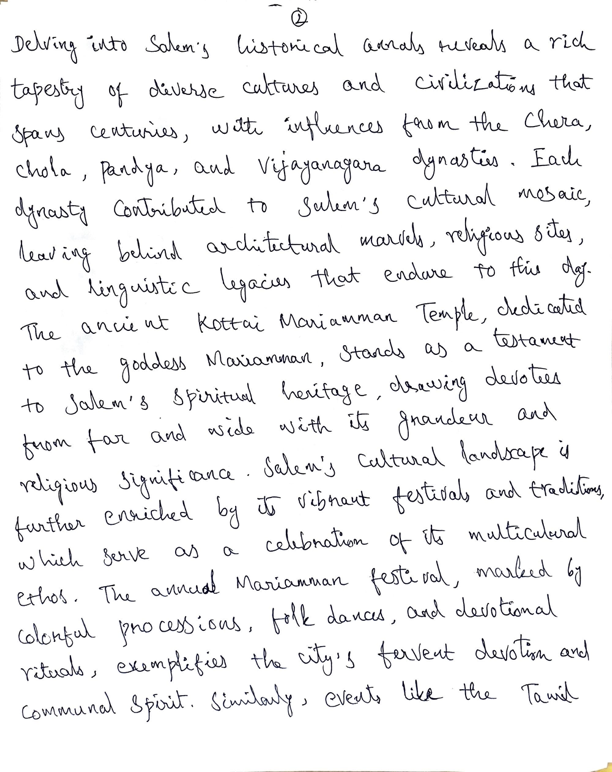 ②
Delving into Salem's historical annals reveals a rich
tapestry of diverse cultures and civilizations that
spans centuries, with influences from the Chera,
chola, pandya, and Vijayanagara dynasties. Each
dynasty Contributed to Salem's cultural mosaic,
leaving behind architectural marvels, religious sites,
and linguistic legacies that endure to this day.
The ancient Kottai Mariamman Temple, dedicated
to the goddess Mariamman, stands as a testament
to Salem's spiritual heritage, drawing devotees
from far and wide with its grandeur and
religious significance. Salem's cultural landscape is
further enriched by its vibrant festivals and traditions,
which serve as a celebration of its multicultural
ethos. The annual Mariamman festival, marked by
colorful processions, folk dances, and devotional
rituals, exemplifies the city's fervent devotion and
communal spirit. Similarly, events like the Tamil